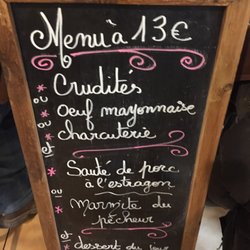 Menu à 13€
* Crudités
ou
* Oeuf mayonnaise
ou
* Charcuterie
et
* Sauté de porc
à l'estragon
ou
* Marmite du
pêcheur
et
* dessert du jour